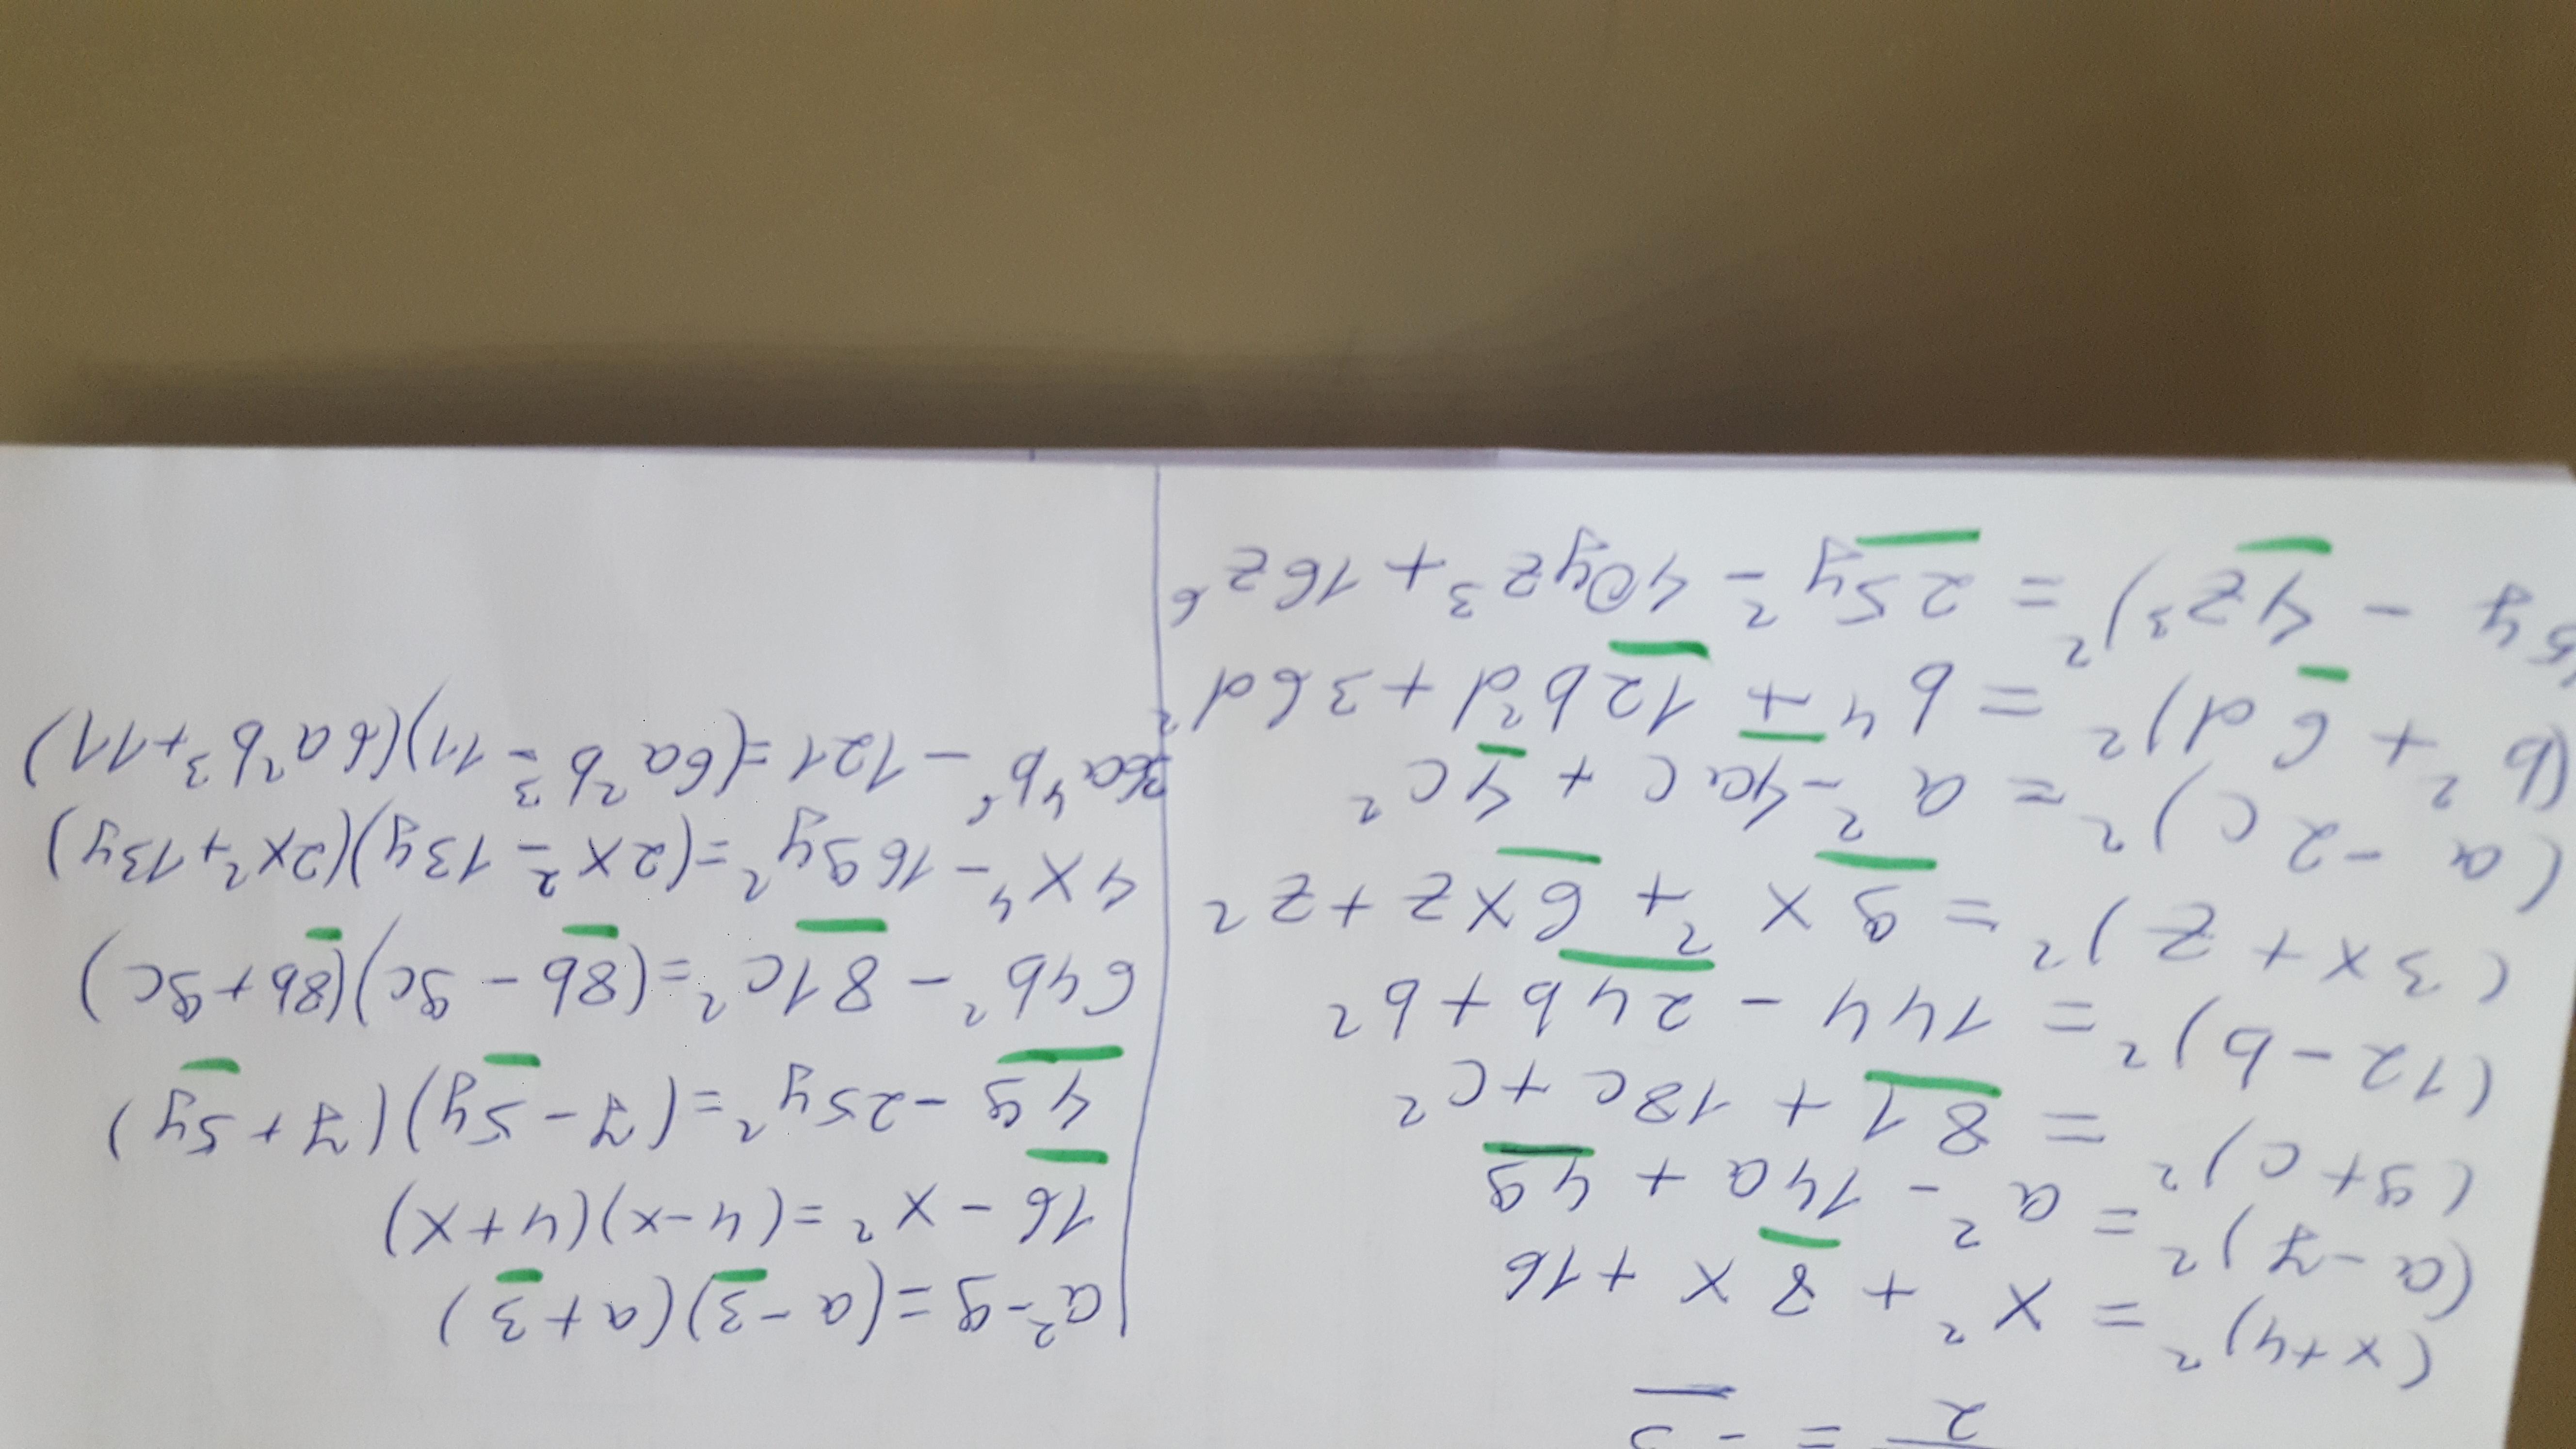 (x+4)² = x² + 8x + 16
(a-7)² = a² - 14a + 49
(9+c)² = 81 + 18c + c²
(12-b)² = 144 - 24b + b²
(3x+z)² = 9x² + 6xz + z²
(a-2c)² = a² - 4ac + 4c²
(b² + 6d)² = b⁴ + 12b²d + 36d²
5y - 4z³)² = 25y² - 40yz³ + 16z⁶
a² - 9 = (a-3)(a+3)
16 - x² = (4-x)(4+x)
49 - 25y² = (7-5y)(7+5y)
64b² - 81c² = (8b - 9c)(8b+9c)
4x⁴ - 169y² = (2x² - 13y)(2x² + 13y)
36a⁴b⁶ - 121 = (6a²b³ - 11)(6a²b³ + 11)